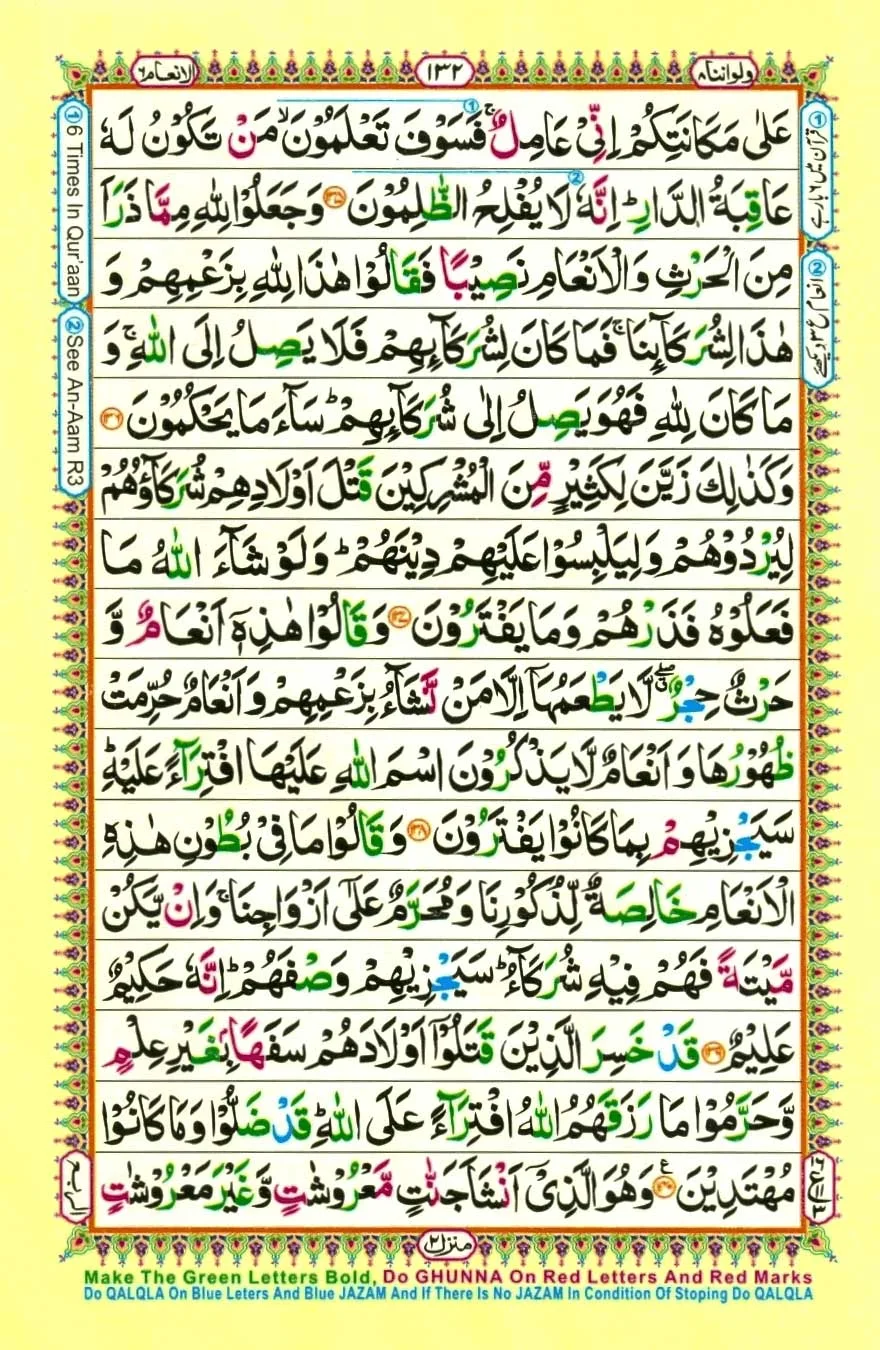 ولواننا ٨
١٣٢
الانعام ٦
عَلٰى مَكَانَتِكُمْ اِنِّىْ عَامِلٌ ۚ فَسَوْفَ تَعْلَمُوْنَ ۙ مَنْ تَكُوْنُ لَهٗ
عَاقِبَةُ الدَّارِ ؕ اِنَّهٗ لَا يُفْلِحُ الظّٰلِمُوْنَ ۝١٣٥ وَجَعَلُوْا لِلّٰهِ مِمَّا ذَرَاَ
مِنَ الْحَرْثِ وَالْاَنْعَامِ نَصِيْبًا فَقَالُوْا هٰذَا لِلّٰهِ بِزَعْمِهِمْ وَ
هٰذَا لِشُرَكَآىِٕنَا ۚ فَمَا كَانَ لِشُرَكَآىِٕهِمْ فَلَا يَصِلُ اِلَى اللّٰهِ ۚ وَ
مَا كَانَ لِلّٰهِ فَهُوَ يَصِلُ اِلٰى شُرَكَآىِٕهِمْ ؕ سَآءَ مَا يَحْكُمُوْنَ ۝١٣٦
وَكَذٰلِكَ زَيَّنَ لِكَثِيْرٍ مِّنَ الْمُشْرِكِيْنَ قَتْلَ اَوْلَادِهِمْ شُرَكَآؤُهُمْ
لِيُرْدُوْهُمْ وَلِيَلْبِسُوْا عَلَيْهِمْ دِيْنَهُمْ ؕ وَلَوْ شَآءَ اللّٰهُ مَا
فَعَلُوْهُ فَذَرْهُمْ وَمَا يَفْتَرُوْنَ ۝١٣٧ وَقَالُوْا هٰذِهٖٓ اَنْعَامٌ وَّ
حَرْثٌ حِجْرٌ ۖۗ لَّا يَطْعَمُهَآ اِلَّا مَنْ نَّشَآءُ بِزَعْمِهِمْ وَاَنْعَامٌ حُرِّمَتْ
ظُهُوْرُهَا وَاَنْعَامٌ لَّا يَذْكُرُوْنَ اسْمَ اللّٰهِ عَلَيْهَا افْتِرَآءً عَلَيْهِ ؕ
سَيَجْزِيْهِمْ بِمَا كَانُوْا يَفْتَرُوْنَ ۝١٣٨ وَقَالُوْا مَا فِىْ بُطُوْنِ هٰذِهِ
الْاَنْعَامِ خَالِصَةٌ لِّذُكُوْرِنَا وَمُحَرَّمٌ عَلٰٓى اَزْوَاجِنَا ۚ وَاِنْ يَّكُنْ
مَّيْتَةً فَهُمْ فِيْهِ شُرَكَآءُ ؕ سَيَجْزِيْهِمْ وَصْفَهُمْ ؕ اِنَّهٗ حَكِيْمٌ
عَلِيْمٌ ۝١٣٩ قَدْ خَسِرَ الَّذِيْنَ قَتَلُوْٓا اَوْلَادَهُمْ سَفَهًۢا بِغَيْرِ عِلْمٍ
وَّحَرَّمُوْا مَا رَزَقَهُمُ اللّٰهُ افْتِرَآءً عَلَى اللّٰهِ ؕ قَدْ ضَلُّوْا وَمَا كَانُوْا
مُهْتَدِيْنَ ۝١٤٠ وَهُوَ الَّذِىْٓ اَنْشَاَ جَنّٰتٍ مَّعْرُوْشٰتٍ وَّغَيْرَ مَعْرُوْشٰتٍ
① قرآن میں ۶ بار ہے
② انعام ع ۳ دیکھئے
① 6 Times In Qur'aan
② See An-Aam R3
منزل ٢
Make The Green Letters Bold, Do GHUNNA On Red Letters And Red Marks
Do QALQLA On Blue Leters And Blue JAZAM And If There Is No JAZAM In Condition Of Stoping Do QALQLA